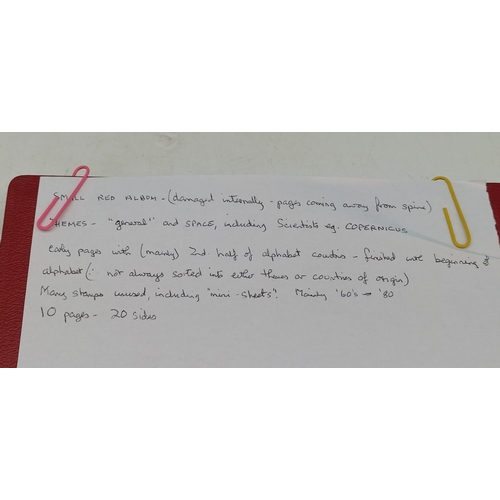 SMALL RED ALBUM - (damaged internally - pages coming away from spine)
THEMES - "general" and SPACE, including Scientists eg. COPERNICUS
early pages with (mainly) 2nd half of alphabet countries - finished with beginning of
alphabet (∴ not always sorted into either themes or countries of origin)
Many stamps unused, including "mini-sheets". Mainly '60's → '80
10 pages - 20 sides